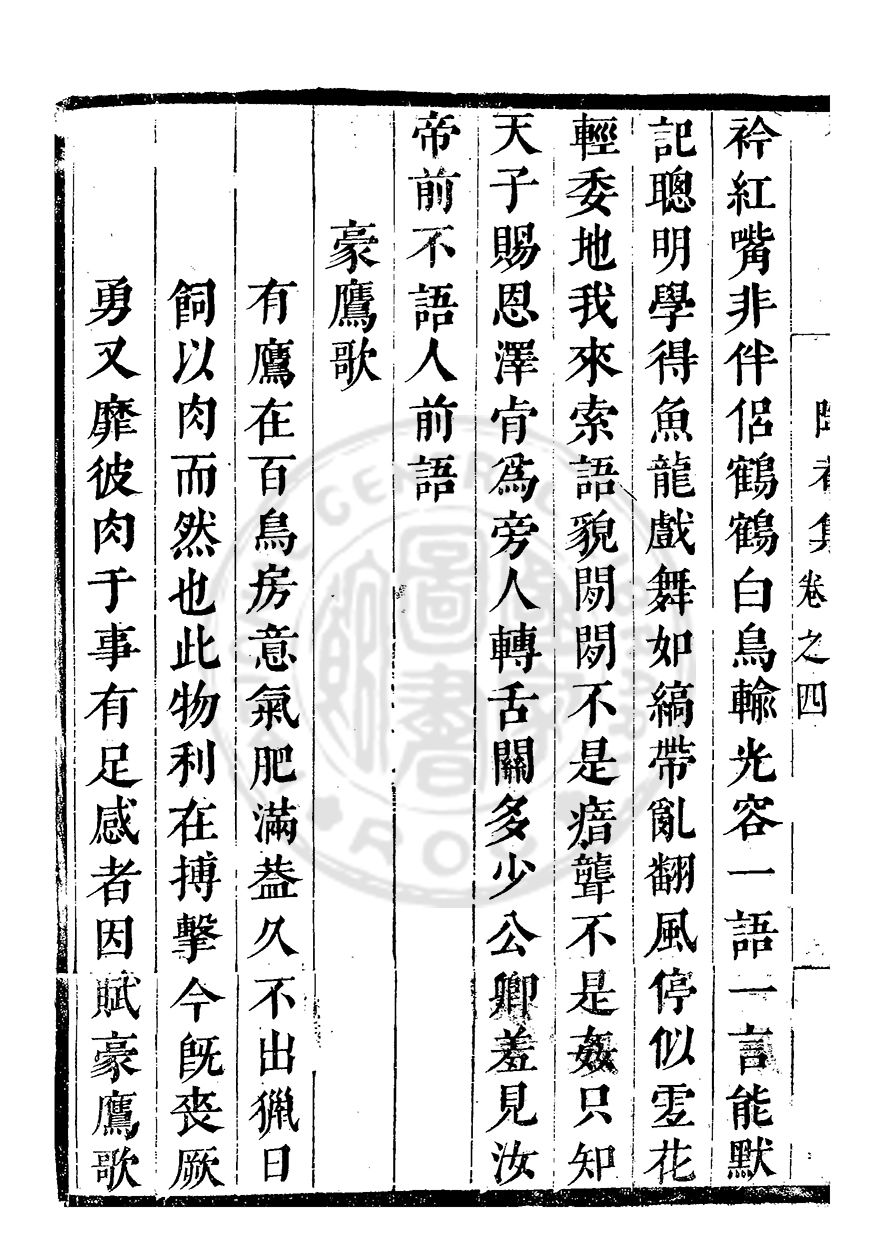 集卷之四
衿紅嘴非伴侶鶴鶴白鳥輸光容一語一言能默
記聰明學得魚龍戲舞如縞帶亂翻風停似雪花
輕委地我來索語貌閉閉不是瘖聾不是姦只知
天子賜恩澤肯為旁人轉舌關多少公卿羞見汝
帝前不語人前語
豪鷹歌
有鷹在百鳥房意氣肥滿葢久不出獵日
飼以肉而然也此物利在搏擊今既喪厥
勇又靡彼肉于事有足感者因賦豪鷹歌